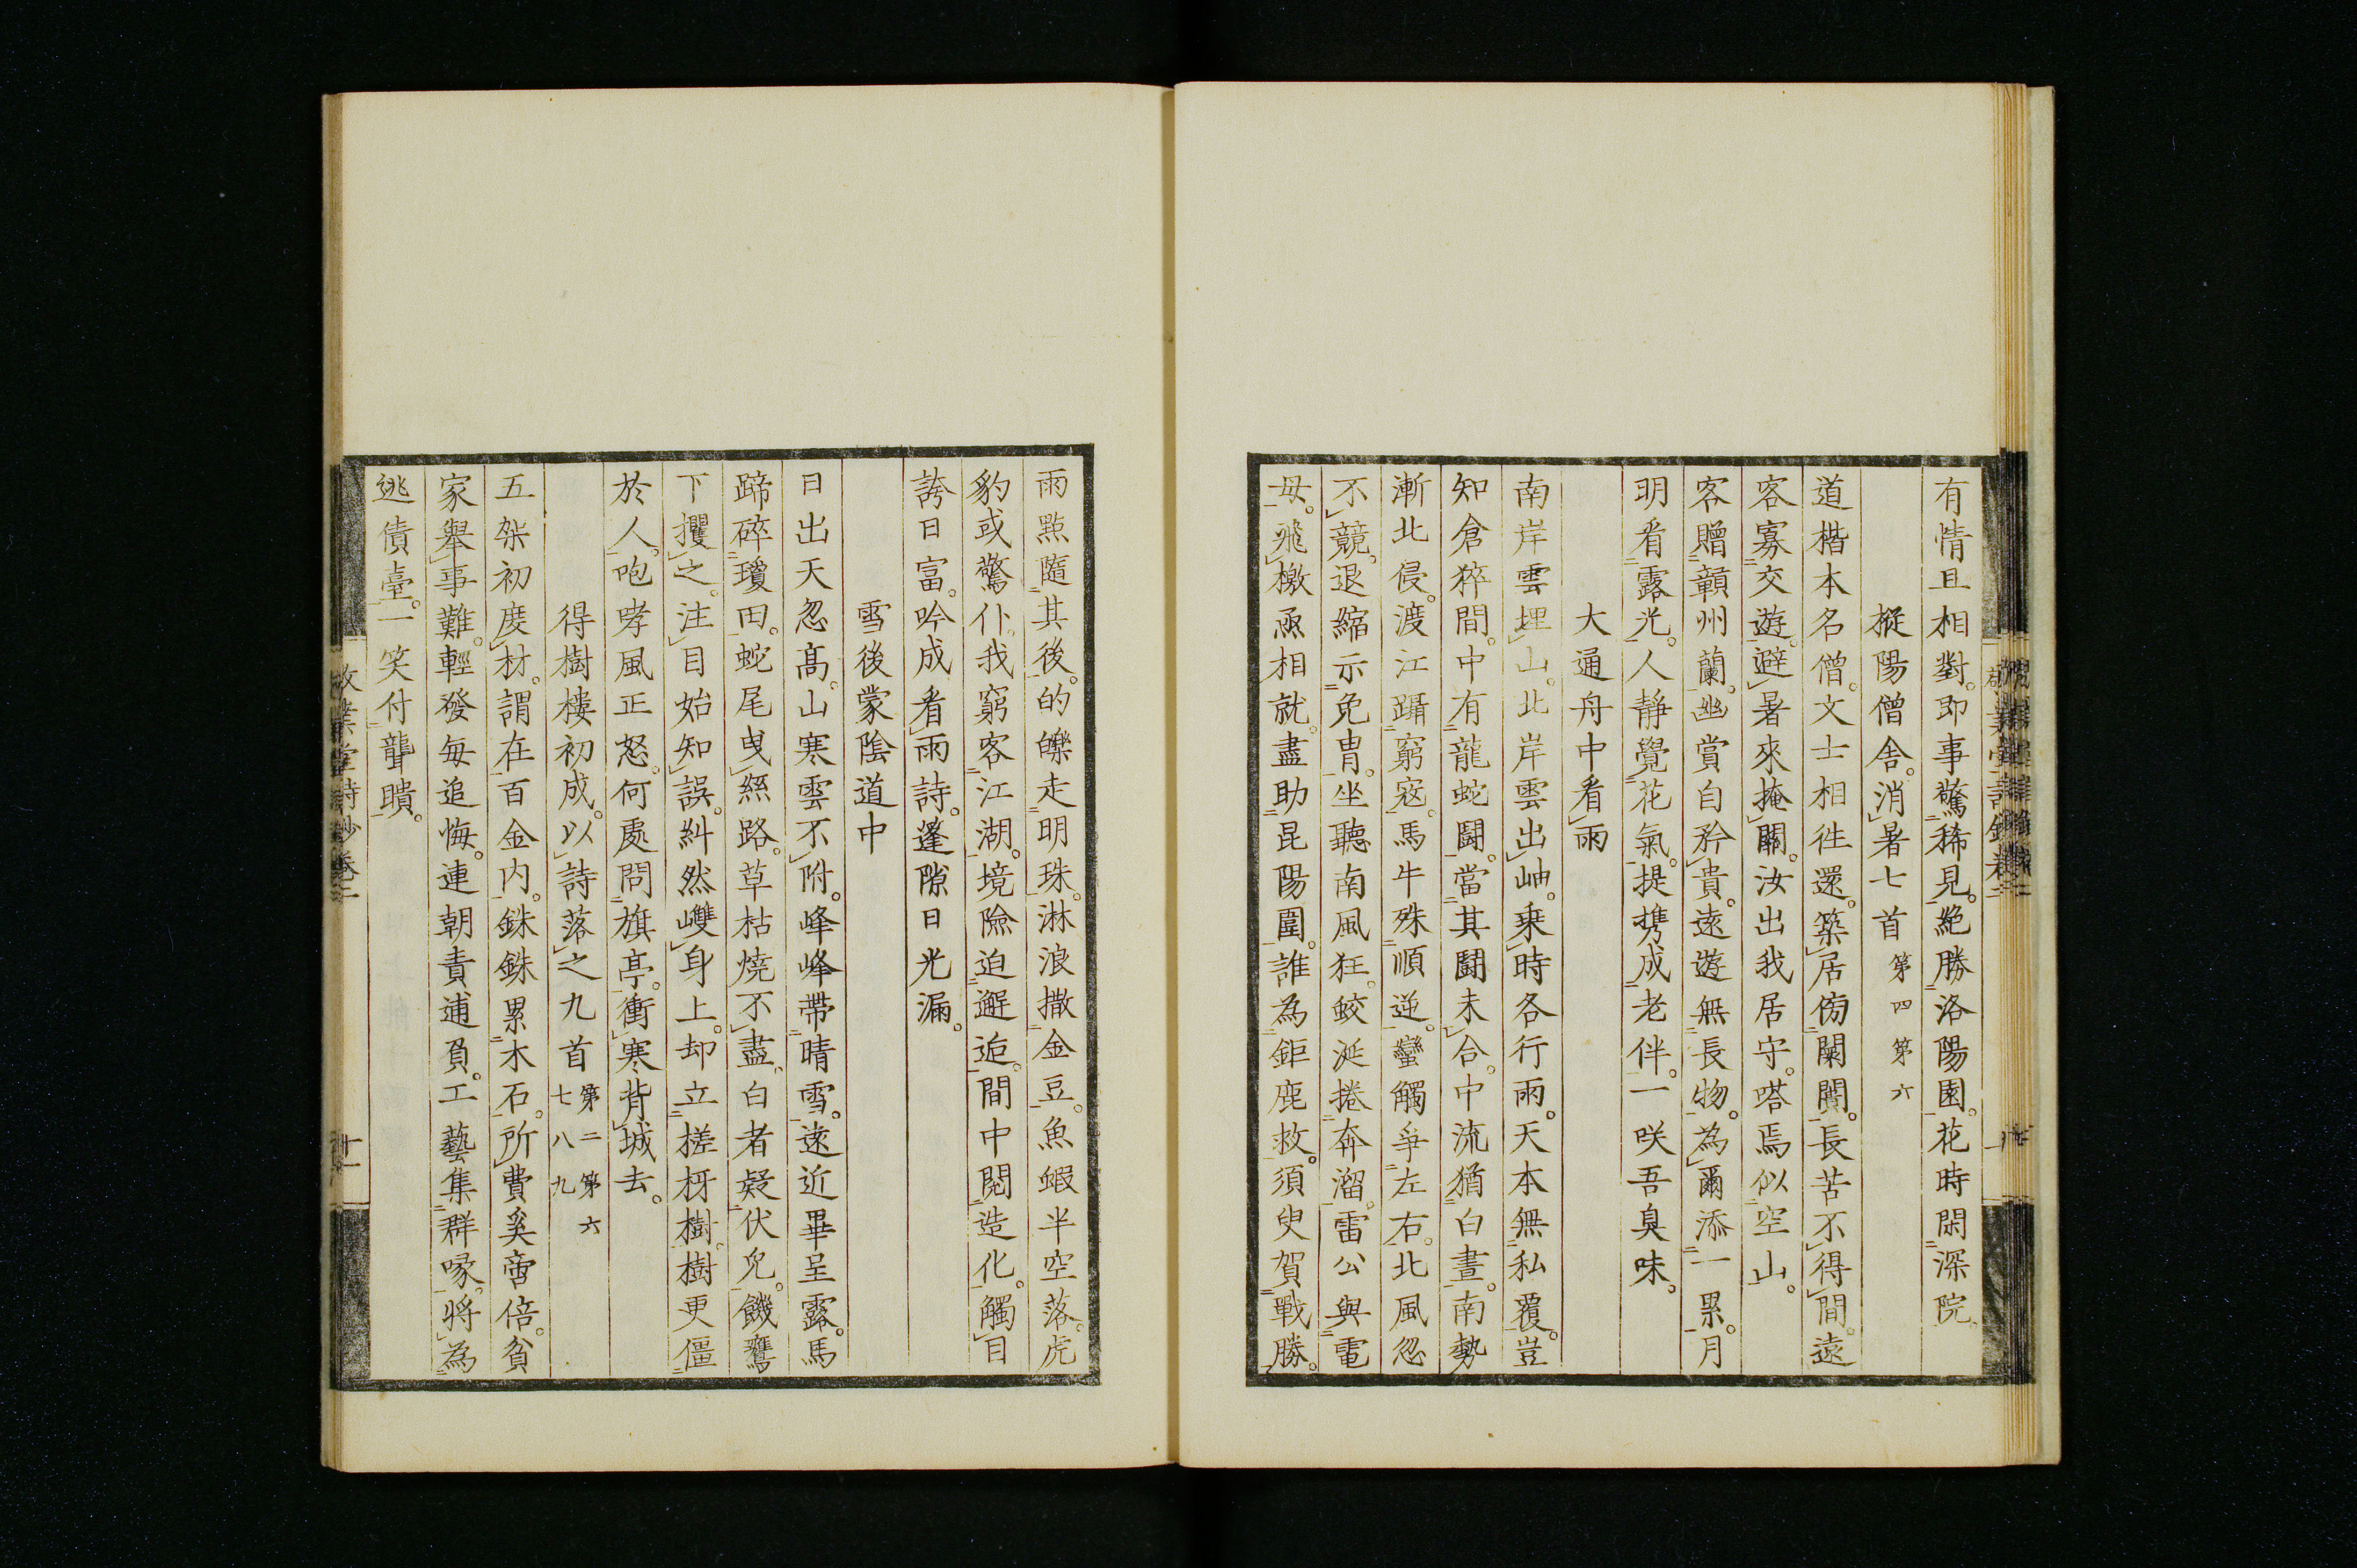 有情且相對。即事驚稀見。絶勝洛陽園。花時閑深院。
樅陽僧舍。消暑七首 第四第六
道楷本名僧。文士相徃還。築居傍闤闠。長苦不得閒。遠
客寡交遊。避暑來掩關。汝出我居守。嗒焉似空山。
客贈贛州蘭。幽賞自矜貴。遠遊無長物。為爾添一累。月
明看露光。人靜覺花氣。提携成老伴。一咲吾臭味。
大通舟中看雨
南岸雲埋山。北岸雲出岫。乗時各行雨。天本無私覆。豈
知倉猝間。中有龍蛇鬪。當其鬪未合。中流猶白晝。南勢
漸北侵。渡江躡窮寇。馬牛殊順逆。蠻觸爭左右。北風忽
不競。退縮示免胄。坐聽南風狂。蛟涎捲奔溜。雷公與電
母。飛檄亟相就。盡助昆陽圍。誰為鉅鹿救。須臾賀戰勝。
雨點隨其後。的皪走明珠。淋浪撒金豆。魚蝦半空落。虎
豹或驚仆。我窮客江湖。境險迫邂逅。間中閱造化。觸目
誇日富。吟成看雨詩。篷隙日光漏。
雪後蒙陰道中
日出天忽高。山寒雲不附。峰峰帶晴雪。遠近畢呈露。馬
蹄碎瓊田。蛇尾曳綫路。草枯燒不盡。白者疑伏兎。饑鷹
下攫之。注目始知誤。糾然嶲身上。却立槎枒樹。樹更僵
於人。咆哮風正怒。何處問旗亭。衝寒背城去。
得樹樓初成。以詩落之九首 第二第六七八九
五架初度材。謂在百金内。銖銖累木石。所費奚啻倍。貧
家舉事難。輕發每追悔。連朝責逋負。工藝集群喙。將為
逃債臺。一笑付聾聵。
敬業堂詩鈔卷二
十一